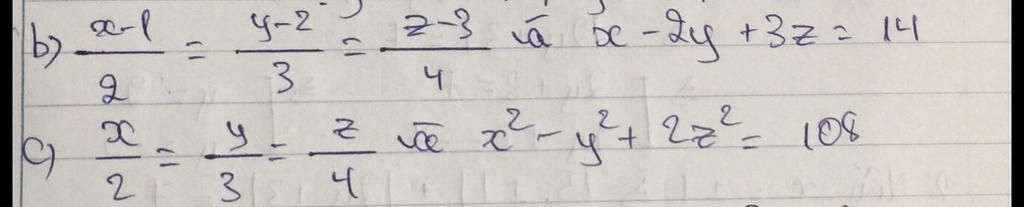 b) (x-1)/2 = (y-2)/3 = (z-3)/4 và x - 2y + 3z = 14
c) x/2 = y/3 = z/4 và x² - y² + 2z² = 108